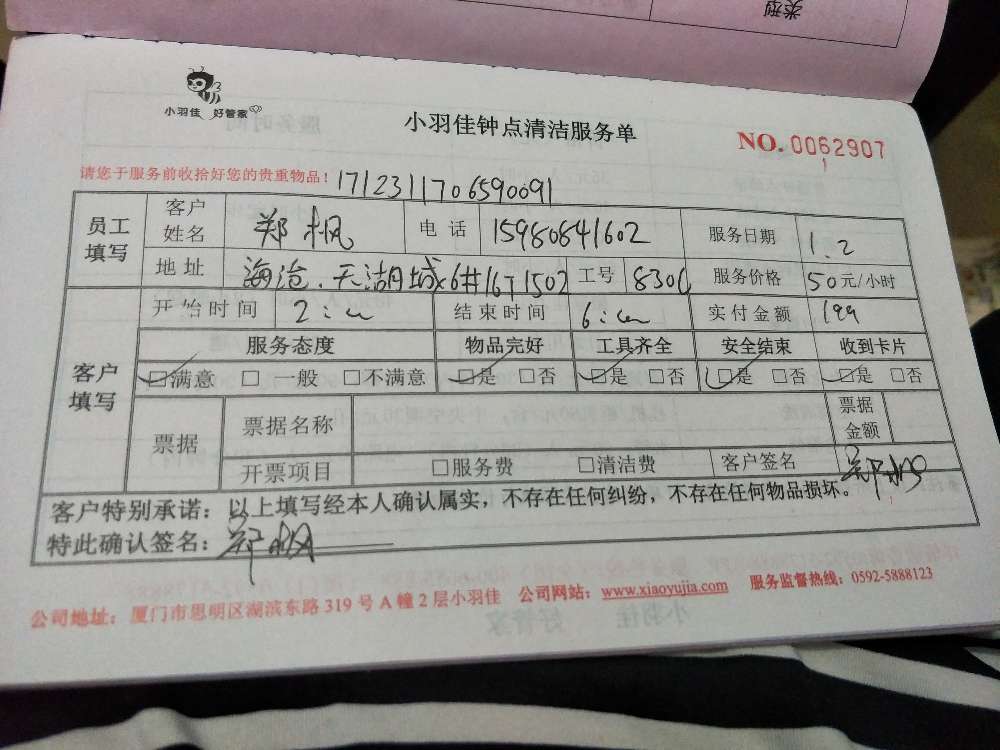 类型
小羽佳 好管家
小羽佳钟点清洁服务单
NO. 0062907
请您于服务前收拾好您的贵重物品！ 1712311706590091
员工填写 客户姓名 郑枫 电话 15980841602 服务日期 1.2
地址 海沧.天湖城6#16T1502 工号 8306 服务价格 50元/小时
客户填写 开始时间 2: 结束时间 6: 实付金额 199
服务态度 物品完好 工具齐全 安全结束 收到卡片
☑满意 □一般 □不满意 ☑是 □否 ☑是 □否 ☑是 □否 ☑是 □否
票据 票据名称 票据金额
开票项目 □服务费 □清洁费 客户签名 郑枫
客户特别承诺：以上填写经本人确认属实，不存在任何纠纷，不存在任何物品损坏。
特此确认签名：郑枫
公司地址：厦门市思明区湖滨东路319号A幢2层小羽佳 公司网站：www.xiaoyujia.com 服务监督热线：0592-5888123